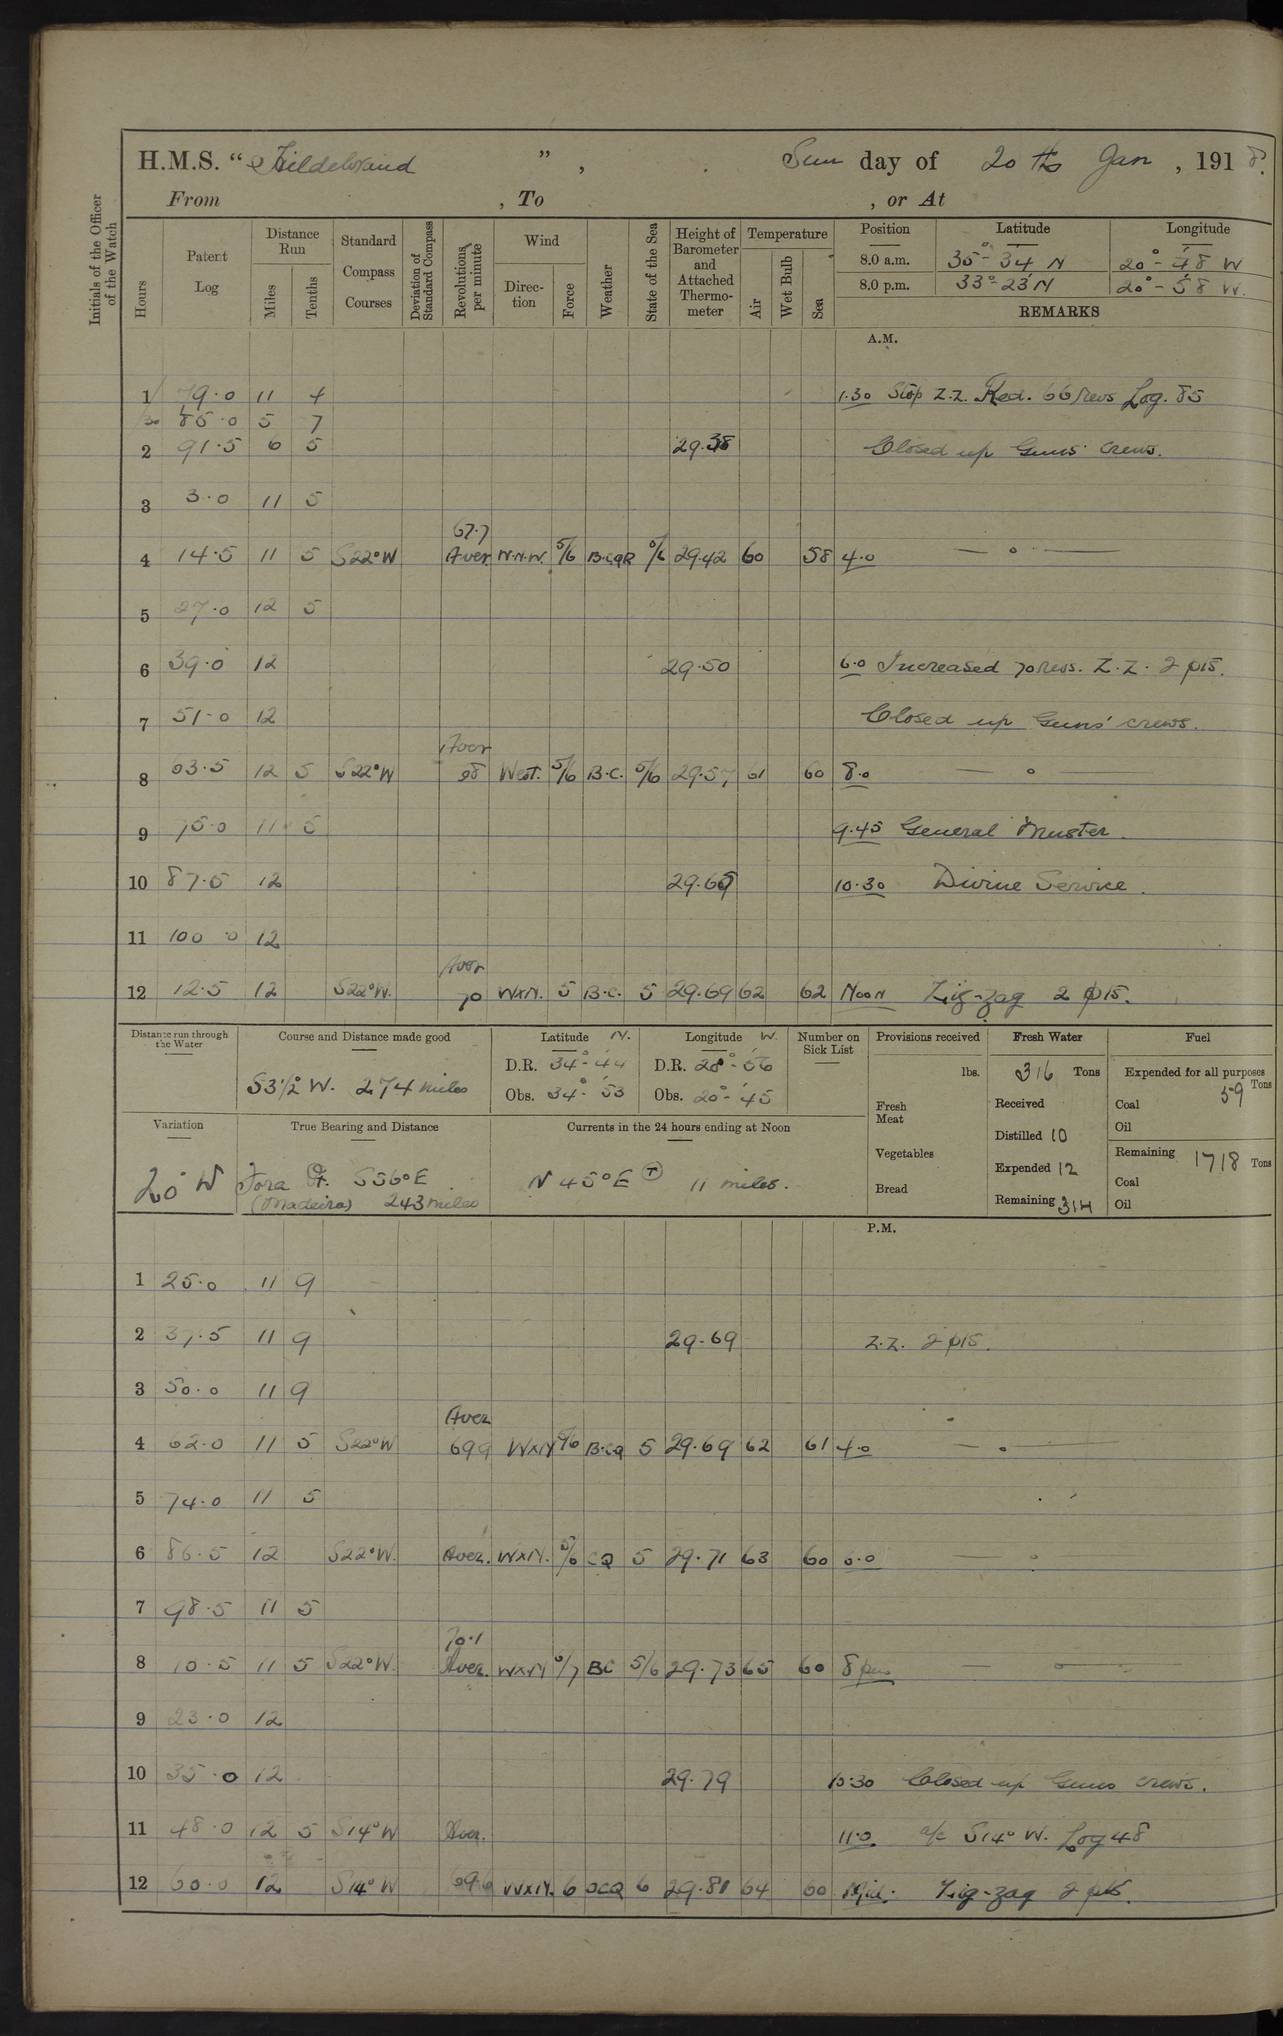 H.M.S. “Hildebrand”, Sun day of 20th Jan, 1918.
From , To , or At
Initials of the Officer of the Watch
Hours
Patent Log
Distance Run
Miles
Tenths
Standard Compass Courses
Deviation of Standard Compass
Revolutions per minute
Wind
Direction
Force
Weather
State of the Sea
Height of Barometer and Attached Thermometer
Temperature
Air
Wet Bulb
Sea
Position Latitude Longitude
8.0 a.m. 35° - 34' N 20° - 48' W
8.0 p.m. 33° 23' N 20° - 58' W.
REMARKS
A.M.
1 79.0 11 4 1.30 Stop Z.Z. Red. 66 revs Log. 85
/30 85.0 5 7
2 91.5 6 5 29.38 Closed up Guns' crews.
3 3.0 11 5
67.7
4 14.5 11 5 S22°W Aver. N.N.W. 5/6 B.CQR 5/6 29.42 60 58 4.0 — o —
5 27.0 12 5
6 39.0 12 29.50 6.0 Increased 70 revs. Z.Z. 2 pts.
7 51.0 12 Closed up Guns' crews.
Aver
8 03.5 12 5 S22°W 68 West. 5/6 B.C. 5/6 29.57 61 60 8.0 — o —
9 75.0 11 5 9.45 General Muster.
10 87.5 12 29.65 10.30 Divine Service.
11 100.0 12
Aver
12 12.5 12 S22°W. 70 WxN. 5 B.C. 5 29.69 62 62 Noon Zig-zag 2 pts.
Distance run through the Water
Course and Distance made good
S3½°W. 274 miles
Latitude N.
D.R. 34° - 44'
Obs. 34° - 53'
Longitude W.
D.R. 20° - 56'
Obs. 20° - 45'
Number on Sick List
Provisions received
lbs.
Fresh Meat
Vegetables
Bread
Fresh Water
316 Tons
Received
Distilled 10
Expended 12
Remaining 314
Fuel
Expended for all purposes
59 Tons
Coal
Oil
Remaining 1718 Tons
Coal
Oil
Variation
20° W
True Bearing and Distance
Fora Lt. S56°E.
(Madeira) 243 miles
Currents in the 24 hours ending at Noon
N 45° E (T) 11 miles.
P.M.
1 25.0 11 9
2 37.5 11 9 29.69 Z.Z. 2 pts.
3 50.0 11 9
Aver
4 62.0 11 5 S22°W 69.9 WxN 5/6 B.CQ 5 29.69 62 61 4.0 — o —
5 74.0 11 5
6 86.5 12 S22°W. Aver. WxN. 5/6 CQ 5 29.71 63 60 6.0 — o
7 98.5 11 5
70.1
8 10.5 11 5 S22°W. Aver. WxN 6/7 BC 5/6 29.73 65 60 8 pm — o —
9 23.0 12
10 35.0 12 29.79 10.30 Closed up Guns crews.
11 48.0 12 5 S14°W Aver. 11.0 a/c S14° W. Log 48
12 60.0 12 S14°W 69.6 WxN. 6 OCQ 6 29.81 64 60 Mid. Zig-zag 2 pts.